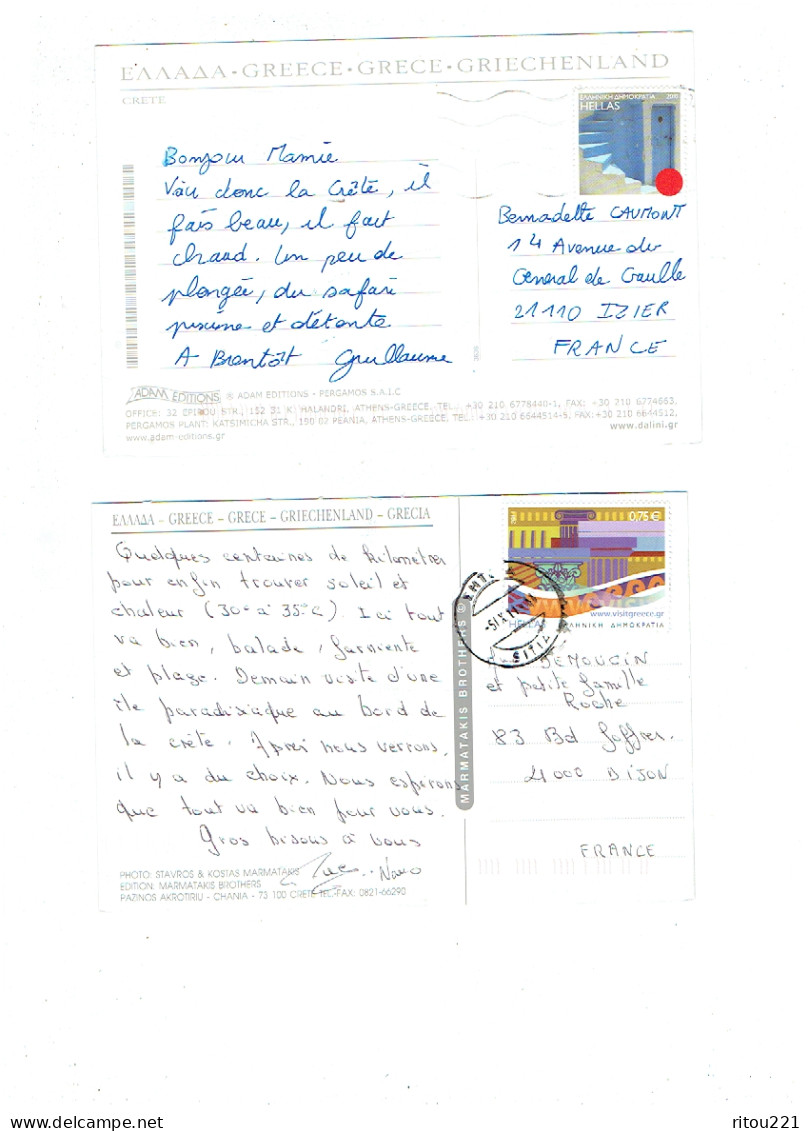 ΕΛΛΑΔΑ • GREECE • GRECE • GRIECHENLAND
CRETE
ΕΛΛΗΝΙΚΗ ΔΗΜΟΚΡΑΤΙΑ
HELLAS
Bonjour Mamie
donc la Crête, il
fais beau, il fait
chaud. Un peu de
plongée, du safari
piscine et détente
A Bientôt Guillaume
Bernadette CAUMONT
14 Avenue du
General de Gaulle
21110 IZIER
FRANCE
ADAM EDITIONS ® ADAM EDITIONS - PERGAMOS S.A.I.C.
OFFICE: 32 EPIROU STR., 152 31 K. HALANDRI, ATHENS-GREECE, TEL.: +30 210 6778440-1, FAX: +30 210 6774663,
PERGAMOS PLANT: KATSIMICHA STR., 190 02 PEANIA, ATHENS-GREECE, TEL.: +30 210 6644514-5, FAX: +30 210 6644512,
www.adam-editions.gr www.dalini.gr
ΕΛΛΑΔΑ – GREECE – GRECE – GRIECHENLAND – GRECIA
0,75 €
www.visitgreece.gr
HELLAS ΕΛΛΗΝΙΚΗ ΔΗΜΟΚΡΑΤΙΑ
SITIA
Quelques centaines de kilomètres
pour enfin trouver soleil et
chaleur (30° à 35°C). Ici tout
va bien, balade, farniente
et plage. Demain visite d'une
île paradisiaque au bord de
la crète. Après nous verrons,
il y a du choix. Nous espérons
que tout va bien pour vous.
Gros bisous à vous
MARMATAKIS BROTHERS ©
DEMOUGIN
et petite famille
Roche
83 Bd Joffre.
21000 DIJON
FRANCE
PHOTO: STAVROS & KOSTAS MARMATAKIS
EDITION: MARMATAKIS BROTHERS
PAZINOS AKROTIRIU - CHANIA - 73 100 CRETE TEL.-FAX: 0821-66290
ritou221